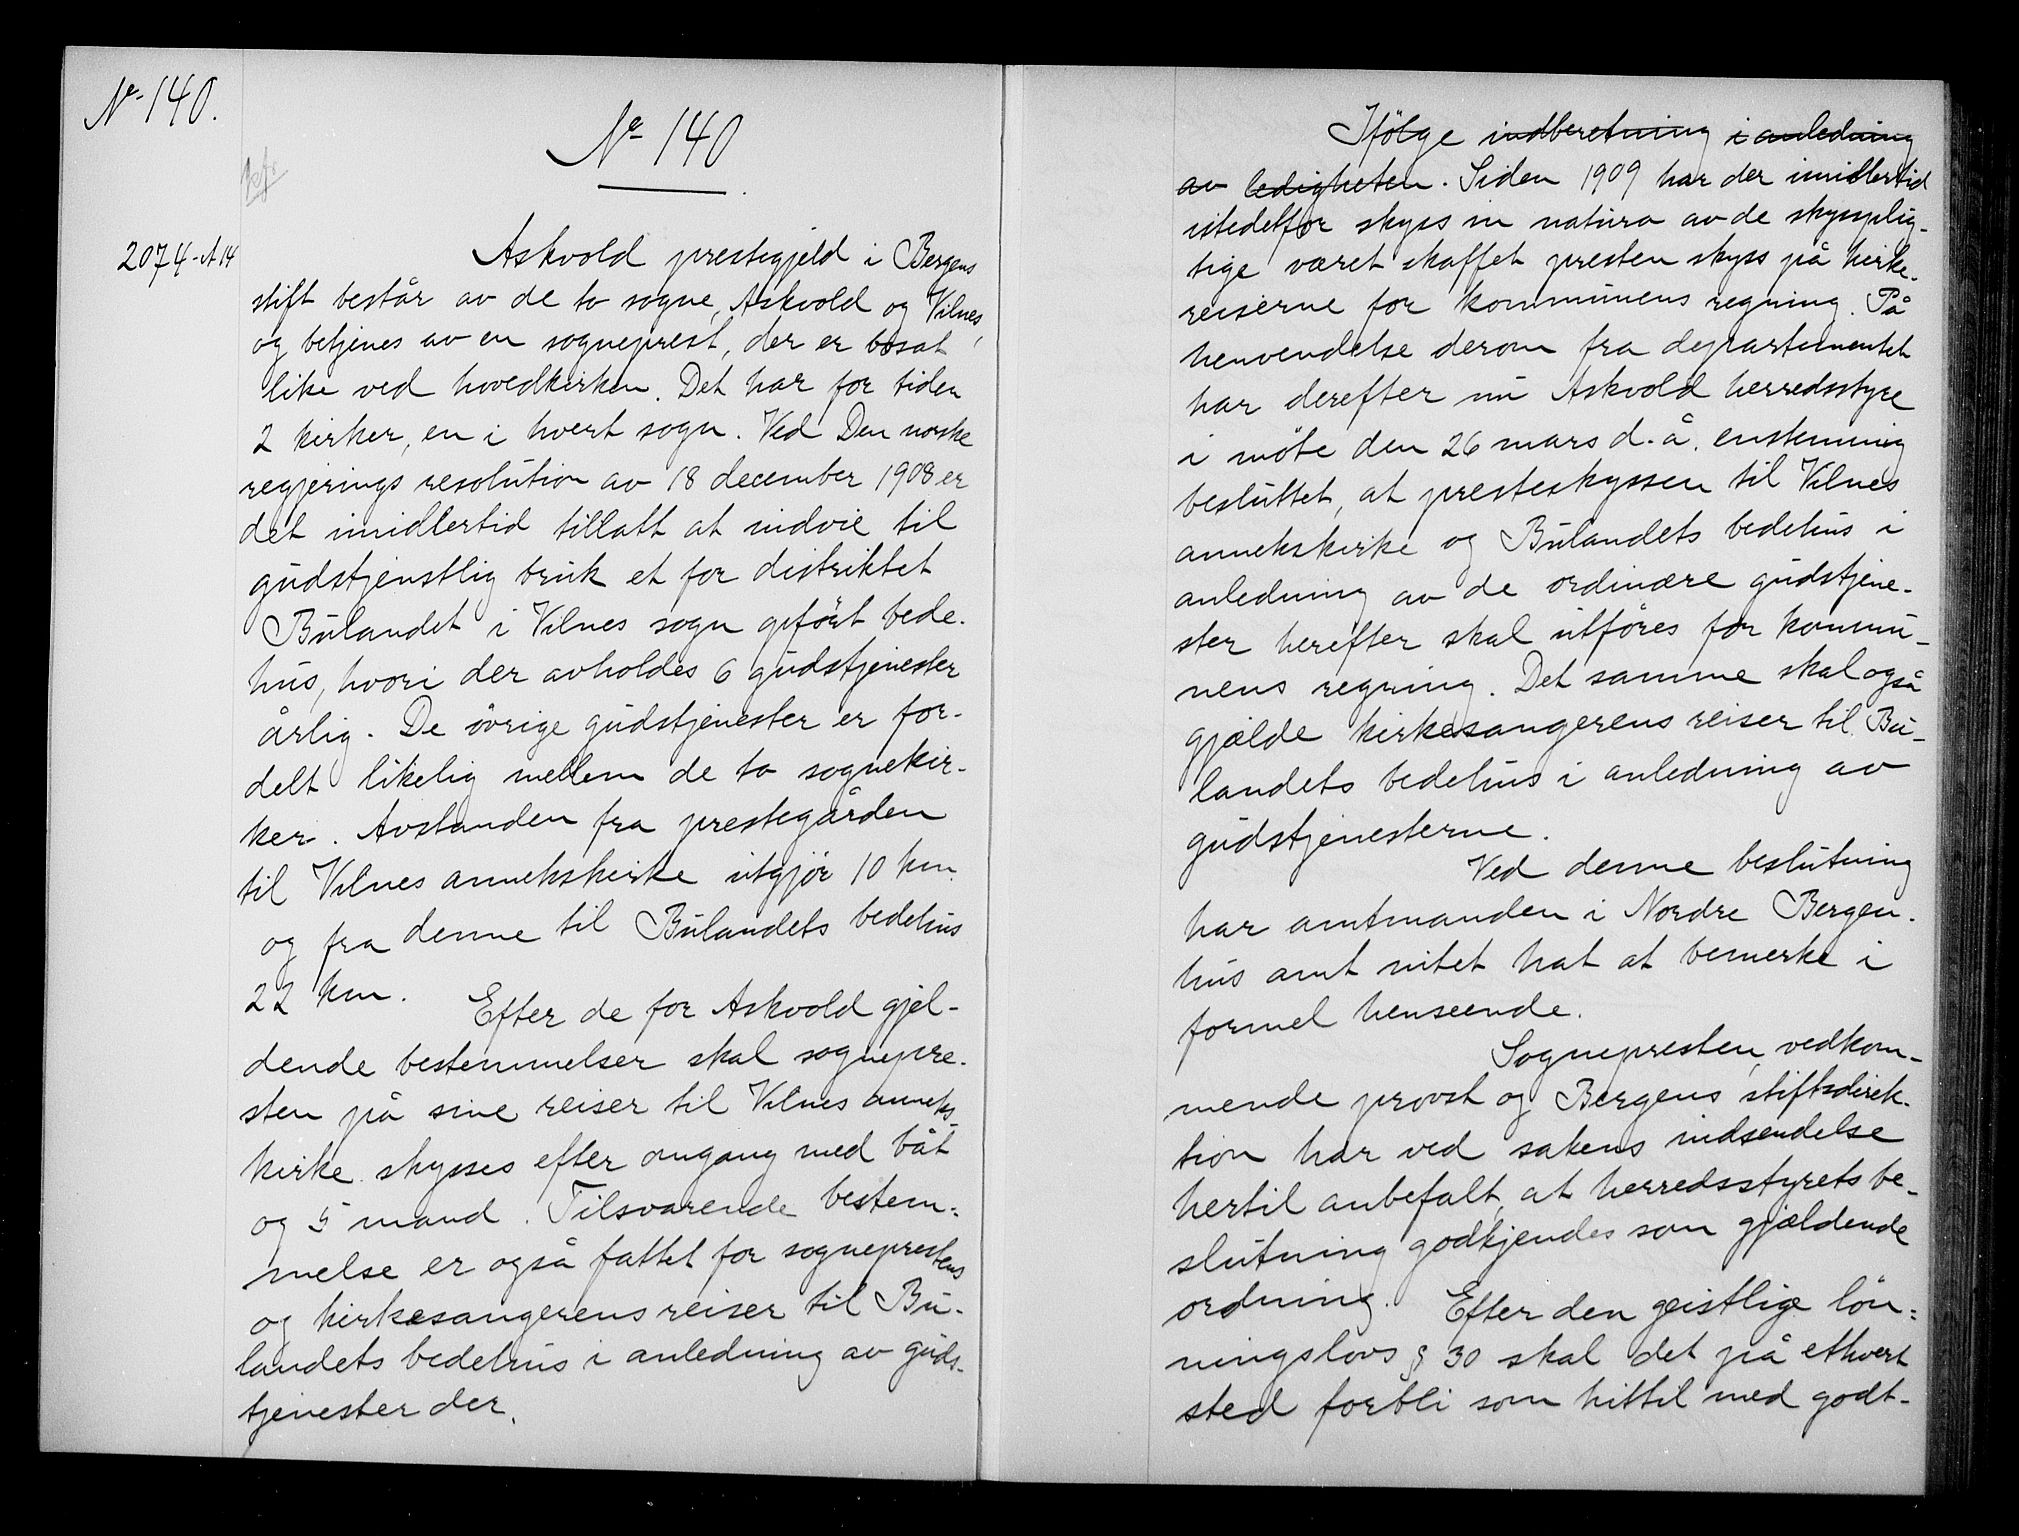 No 140.
No 140
2074-A14
Askvold prestegjeld i Bergens
stift består av de to sogne, Askvold og Vilnes,
og betjenes av en sogneprest, der er bosat
like ved hovedkirken. Det har for tiden
2 kirker, en i hvert sogn. Ved Den norske
regjerings resolution av 18 december 1908 er
det imidlertid tillatt at indvie til
gudstjenstlig bruk et for distriktet
Bulandet i Vilnes sogn opført bede-
hus, hvori der avholdes 6 gudstjenester
årlig. De øvrige gudstjenester er for-
delt likelig mellem de to sognekir-
ker. Avstanden fra prestegården
til Vilnes annekskirke utgjør 10 km.
og fra denne til Bulandets bedehus
22 km.
Efter de for Askvold gjel-
dende bestemmelser skal sognepre-
sten på sine reiser til Vilnes anneks-
kirke skysses efter omgang med båt
og 5 mand. Tilsvarende bestem-
melse er også fattet for sogneprestens
og kirkesangerens reiser til Bu-
landets bedehus i anledning av guds-
tjenester der.
Ifølge indberetning i anledning
av ledigheten. Siden 1909 har der imidlertid
istedetfor skyss in natura av de skysplig-
tige været skaffet presten skyss på kirke-
reiserne for kommunens regning. På
henvendelse derom fra departementet
har derefter nu Askvold herredsstyre
i møte den 26 mars d.å. enstemmig
besluttet, at presteskyssen til Vilnes
annekskirke og Bulandets bedehus i
anledning av de ordinære gudstjene-
ster herefter skal utføres for kommu-
nens regning. Det samme skal også
gjælde kirkesangerens reiser til Bu-
landets bedehus i anledning av
gudstjenesterne.
Ved denne beslutning
har amtmanden i Nordre Bergen-
hus amt intet hat at bemerke i
formel henseende.
Sognepresten, vedkom-
mende provst og Bergens stiftsdirek-
tion har ved sakens indsendelse
hertil anbefalt, at herredsstyrets be-
slutning godkjendes som gjældende
ordning.
Efter den geistlige løn-
ningslovs § 30 skal det på ethvert
sted forbli som hittil med godt-